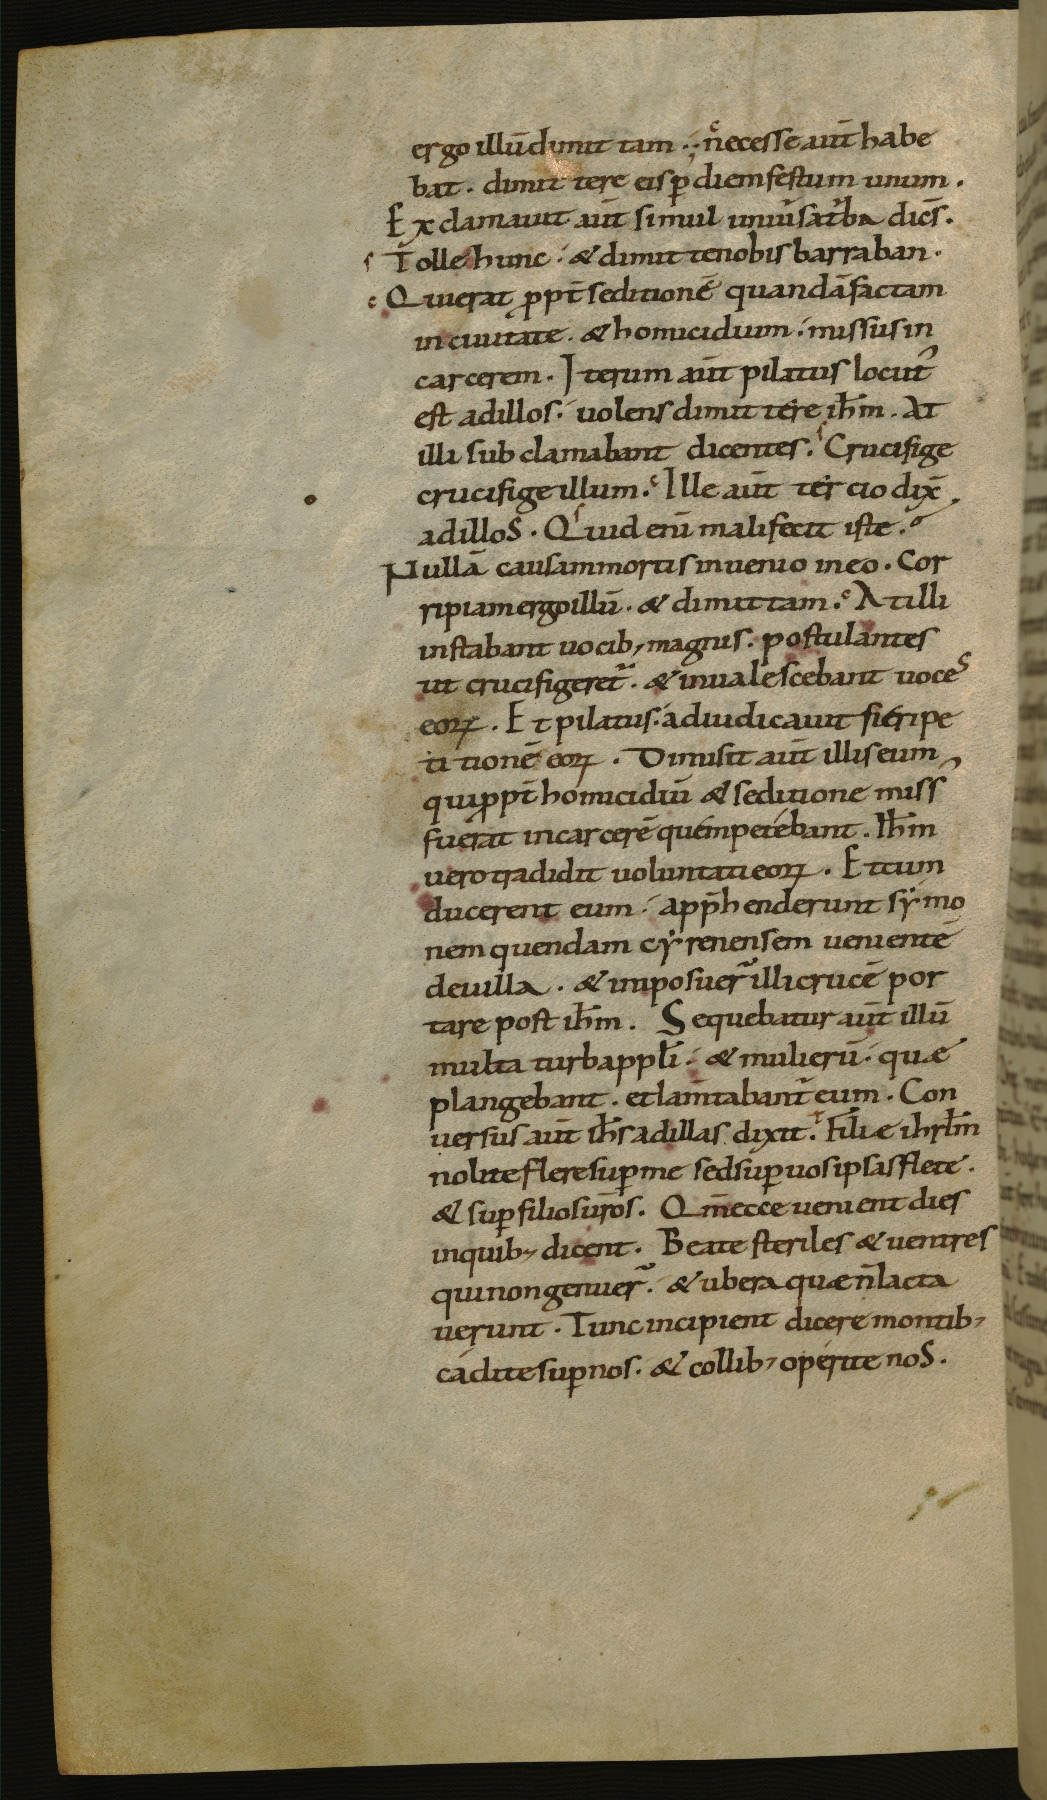 ergo illū dimittam .·. necesse aut̄ habe
bat . dimittere eis p̱ diem festum unum .
Exclamauit aut̄ simul uniu̓sa tu̓ba dic̄s .
s Tolle hunc .· & dimitte nobis barraban .
c Qui erat ꝓpt̄ seditionē quandā factam
in ciuitate . & homicidium .· missus in
carcerem . Iterum aut̄ pilatus locut᾽
est ad illos .· uolens dimittere ih̄m . At
illi subclamabant dicentes . s Crucifige
crucifige illum . c Ille aut̄ tercio dix̄
ad illos . s Quid eni̅ mali fecit iste .
Nullā causam mortis inuenio in eo . Cor
ripiam ergo illū . & dimittam . c At illi
instabant uocib; magnis . postulantes
ut crucifigeret᷑ . & inualescebant uoces
eoꝝ . Et pilatus .· adiudicauit fieri pe
titionē eoꝝ . Dimisit aut̄ illis eum
qui ꝓpt̄ homicidiū & seditione miss᾽
fuerat in carcerē quem petebant . Ih̄m
uero tradidit uoluntati eoꝝ . Et cum
ducerent eum .· app̄henderunt sẏmo
nem quendam cẏrenensem uenientē
de uilla . & imposuer̄ illi crucē por
tare post ih̄m . Sequebatur aut̄ illū
multa turba ppl̄i .· & mulierū .· quæ
plangebant . et lam̄tabant᷑ eum . Con
uersus aut̄ ih̄s ad illas dixit . Filiæ ihrl̄m
nolite flere sup̱ me sed sup̱ uos ipsas flete .
& sup̱ filios ur̄os . Qm̄ ecce uenient dies
in quib; dicent . Beate steriles & uentres
qui non genuer̄ . & ubera quæ n̄ lacta
uerunt . Tunc incipient dicere montib;
cadite sup̱ nos . & collib; operite nos .